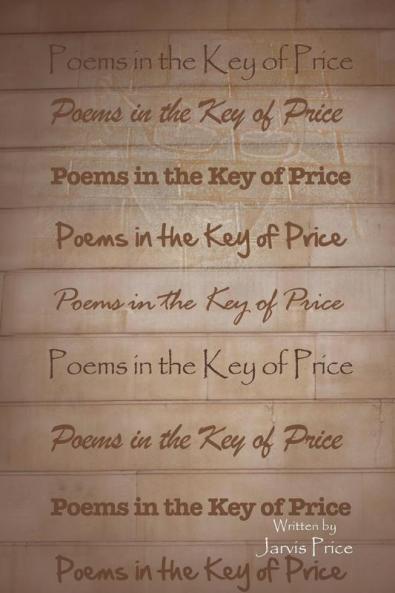 Poems in the Key of Price
Poems in the Key of Price
Poems in the Key of Price
Poems in the Key of Price
Poems in the Key of Price
Poems in the Key of Price
Poems in the Key of Price
Poems in the Key of Price
Written by
Jarvis Price
Poems in the Key of Price